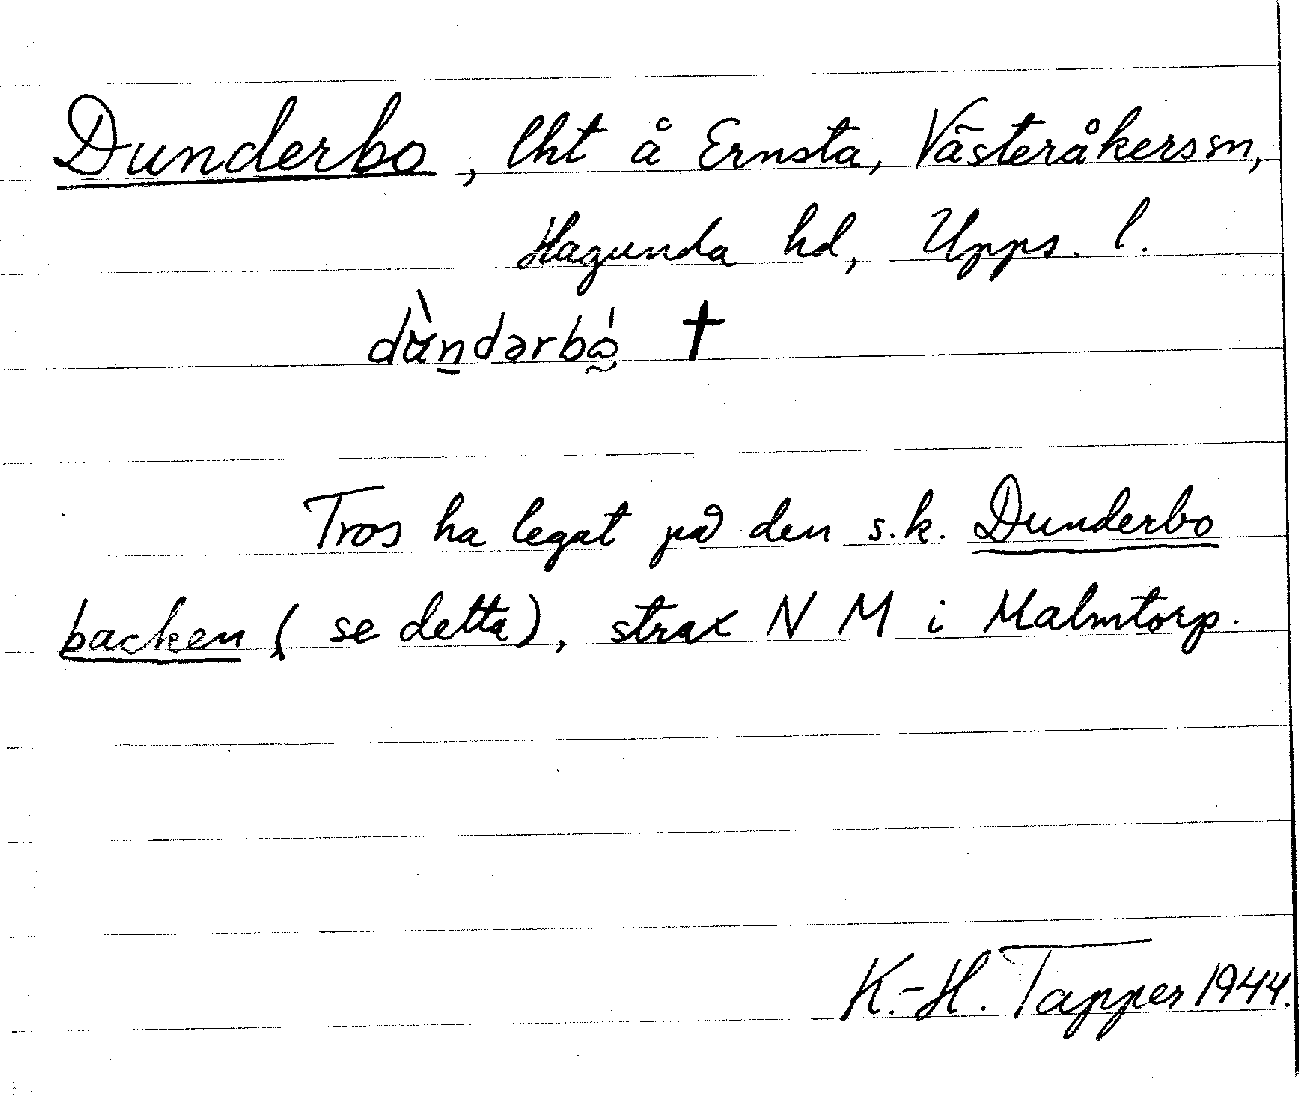 Dunderbo, lht å Ernsta, Västeråkerssn,
Hagunda hd, Upps. l.
dùndərbó †
Tros ha legat på den s.k. Dunderbo
backen (se detta), strax N M i Malmtorp.
K.-H. Tapper 1944.